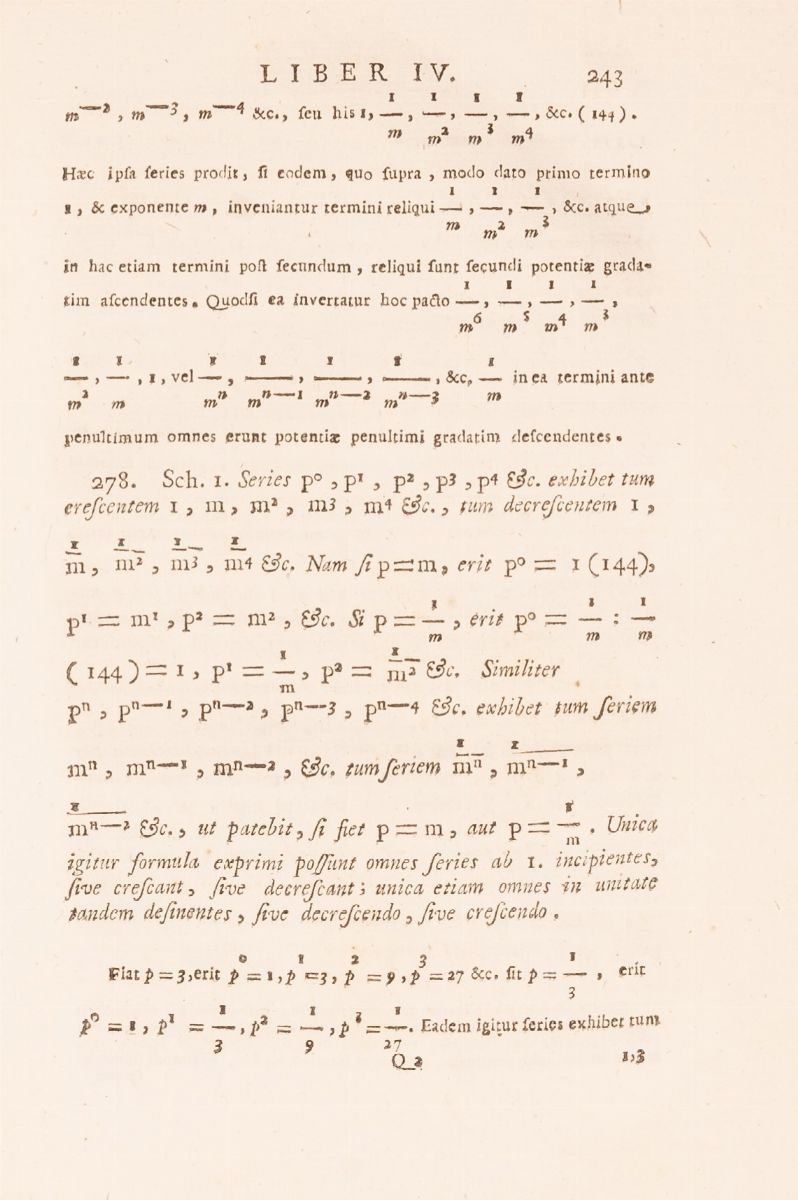 LIBER IV. 243
m—2 , m—3 , m—4 &c., ſeu his 1, 1/m , 1/m² , 1/m³ , 1/m⁴ , &c. ( 144 ) .
Hæc ipſa ſeries prodit, ſi eodem, quo ſupra , modo dato primo termino
1 , & exponente m , inveniantur termini reliqui 1/m , 1/m² , 1/m³ , &c. atque
in hac etiam termini poſt ſecundum , reliqui ſunt ſecundi potentiæ grada-
tim aſcendentes. Quodſi ea invertatur hoc pacto 1/m⁶ , 1/m⁵ , 1/m⁴ , 1/m³ ,
1/m² , 1/m , 1 , vel 1/mⁿ , 1/mⁿ—¹ , 1/mⁿ—² , 1/mⁿ—³ , &c, 1/m in ea termini ante
penultimum omnes erunt potentiæ penultimi gradatim deſcendentes .
278. Sch. 1. Series p⁰ , p¹ , p² , p³ , p⁴ &c. exhibet tum
creſcentem 1 , m , m² , m³ , m⁴ &c. , tum decreſcentem 1 ,
1/m , 1/m² , 1/m³ , 1/m⁴ &c. Nam ſi p = m , erit p⁰ = 1 (144),
p¹ = m¹ , p² = m² , &c. Si p = 1/m , erit p⁰ = 1/m : 1/m
( 144 ) = 1 , p¹ = 1/m , p² = 1/m² &c. Similiter
pⁿ , pⁿ—¹ , pⁿ—² , pⁿ—³ , pⁿ—⁴ &c. exhibet tum ſeriem
mⁿ , mⁿ—¹ , mⁿ—² , &c. tum ſeriem 1/mⁿ , 1/mⁿ—¹ ,
1/mⁿ—² &c. , ut patebit, ſi fiet p = m , aut p = 1/m . Unica
igitur formula exprimi poſſunt omnes ſeries ab 1. incipientes,
ſive creſcant , ſive decreſcant ; unica etiam omnes in unitate
tandem deſinentes , ſive decreſcendo , ſive creſcendo .
Fiat p = 3, erit p⁰ = 1 , p¹ = 3 , p² = 9 , p³ = 27 &c. ſit p = 1/3 , erit
p⁰ = 1 , p¹ = 1/3 , p² = 1/9 , p³ = 1/27 . Eadem igitur ſeries exhibet tum
Q 2 1,3